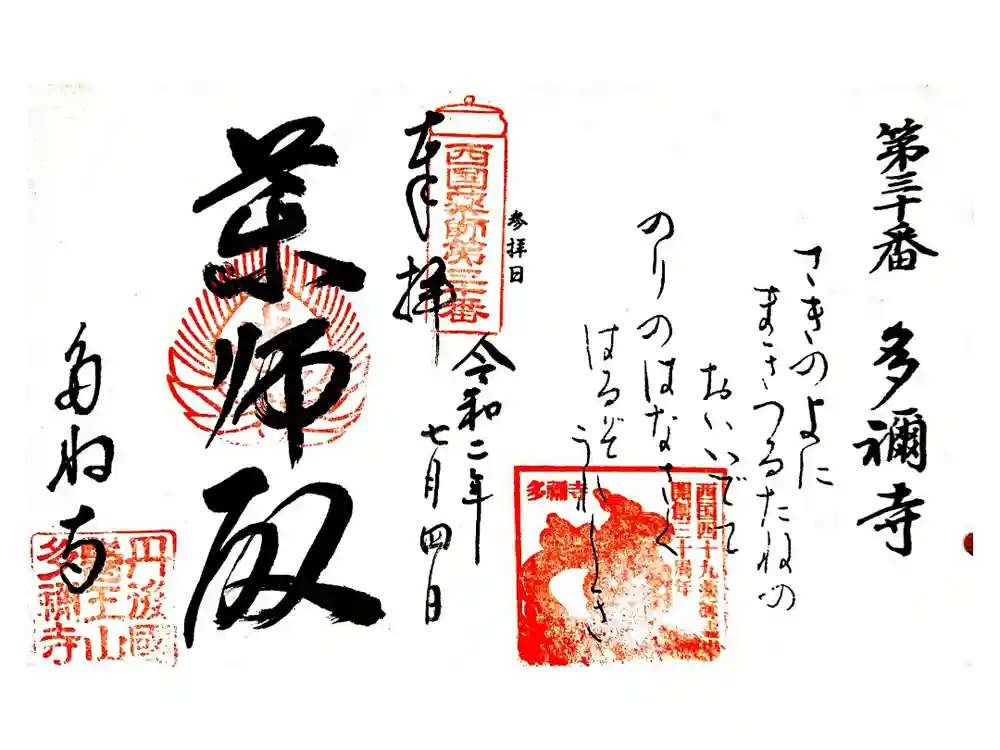 第三十番 多禰寺
さきのよに
まきつるたねの
おいいでて
のりのはなさく
はるぞうれしき
参拝日
奉拝
西国薬師第三十番
令和二年
七月四日
薬師殿
多ね寺
西国四十九薬師
開創三十周年
多禰寺
丹後國
醫王山
多禰寺